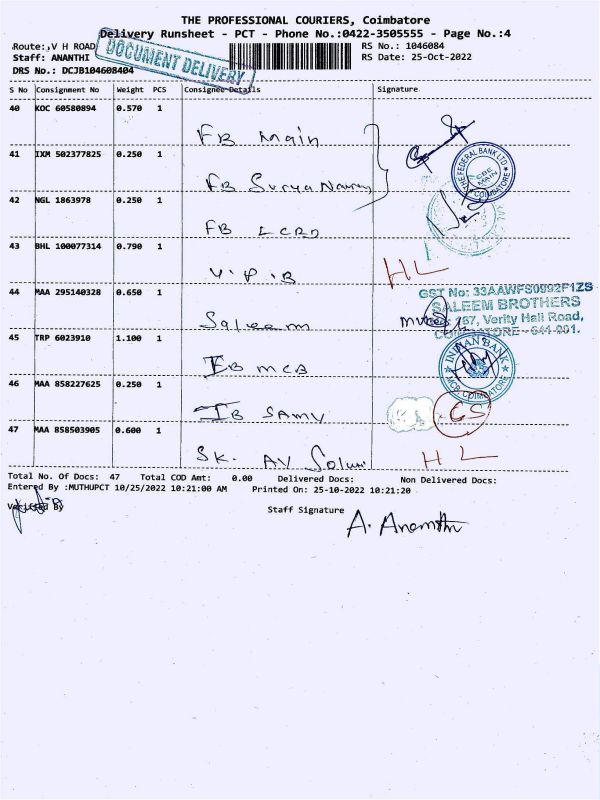 THE PROFESSIONAL COURIERS, Coimbatore
Delivery Runsheet - PCT - Phone No.:0422-3505555 - Page No.:4
Route:,V H ROAD
RS No.: 1046084
Staff: ANANTHI
RS Date: 25-Oct-2022
DRS No.: DCJB104608404
DOCUMENT DELIVERY
S No Consignment No Weight PCS Consignee Details Signature
40 KOC 60580894 0.570 1
FB Main
41 IXM 502377825 0.250 1
THE FEDERAL BANK LTD
CBE MAIN
COIMBATORE
FB Surya
42 NGL 1863978 0.250 1
FB LCRD
43 BHL 100077314 0.790 1
V.P.B
HL
44 MAA 295140328 0.650 1
GST No: 33AAWFS0992F1ZS
SALEEM BROTHERS
167, Verity Hall Road,
COIMBATORE - 641 001.
Saleem
45 TRP 6023910 1.100 1
INDIAN BANK
MCB COIMBATORE
IB MCB
46 MAA 858227625 0.250 1
IB SAMV
CS
47 MAA 858503905 0.600 1
SK. AV
HL
Total No. Of Docs: 47 Total COD Amt: 0.00 Delivered Docs: Non Delivered Docs:
Entered By :MUTHUPCT 10/25/2022 10:21:00 AM Printed On: 25-10-2022 10:21:20
Verified By
Staff Signature
A. Ananthi